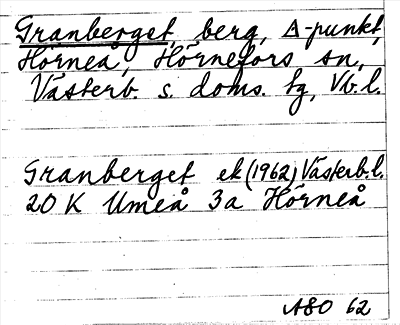 Granberget berg, Δ-punkt,
Hörneå, Hörnefors sn,
Västerb. s. doms. tg, Vb. l.
Granberget ek (1962) Västerb. l.
20 K Umeå 3a Hörneå
ASO 62